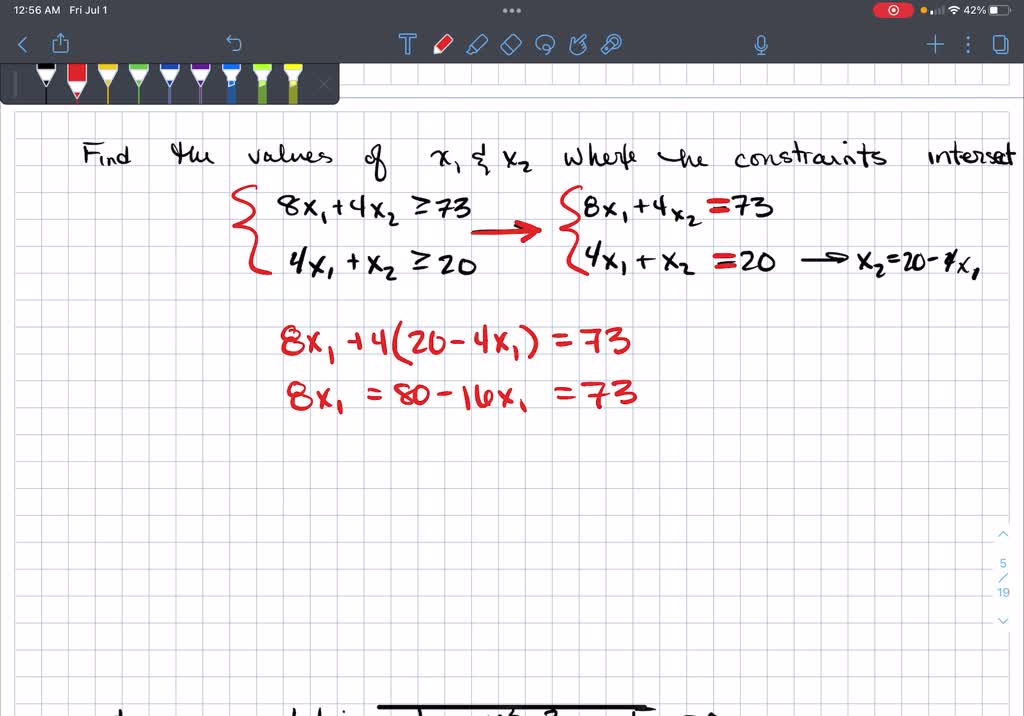 12:56 AM Fri Jul 1
42%
T
Find the values of x₁ & x₂ where the constraints interset
8x₁ + 4x₂ ≥ 73 → 8x₁ + 4x₂ = 73
4x₁ + x₂ ≥ 20 4x₁ + x₂ = 20 → x₂ = 20 - 4x₁
8x₁ + 4(20 - 4x₁) = 73
8x₁ = 80 - 16x₁ = 73
5
/
19